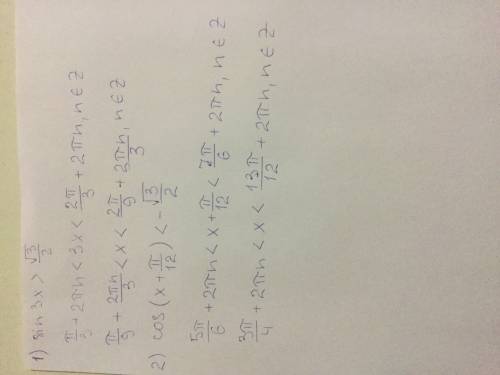 1) sin 3x > √3/2
π/3 + 2πn < 3x < 2π/3 + 2πn, n ∈ Z
π/9 + 2πn/3 < x < 2π/9 + 2πn/3, n ∈ Z
2) cos(x + π/12) < -√3/2
5π/6 + 2πn < x + π/12 < 7π/6 + 2πn, n ∈ Z
3π/4 + 2πn < x < 13π/12 + 2πn, n ∈ Z